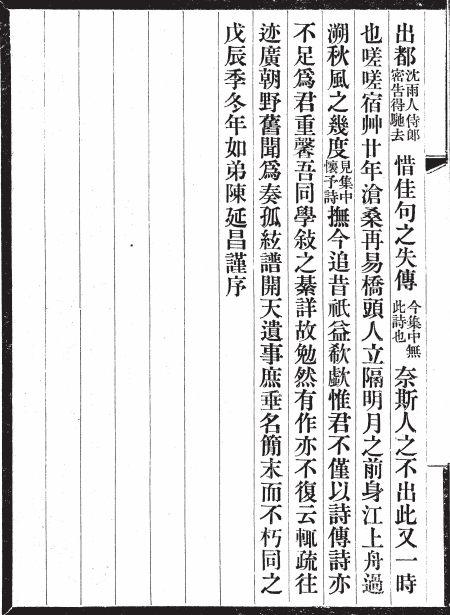 出都沈雨人侍郎密告得馳去惜佳句之失傳今集中無此詩也奈斯人之不出此又一時
也嗟嗟宿艸廿年滄桑再易橋頭人立隔明月之前身江上舟過
溯秋風之幾度見集中懷予詩撫今追昔祇益欷歔惟君不僅以詩傳詩亦
不足爲君重馨吾同學敍之綦詳故勉然有作亦不復云輒疏往
迹廣朝野舊聞爲奏孤絃譜開天遺事庶垂名簡末而不朽同之
戊辰季冬年如弟陳延昌謹序